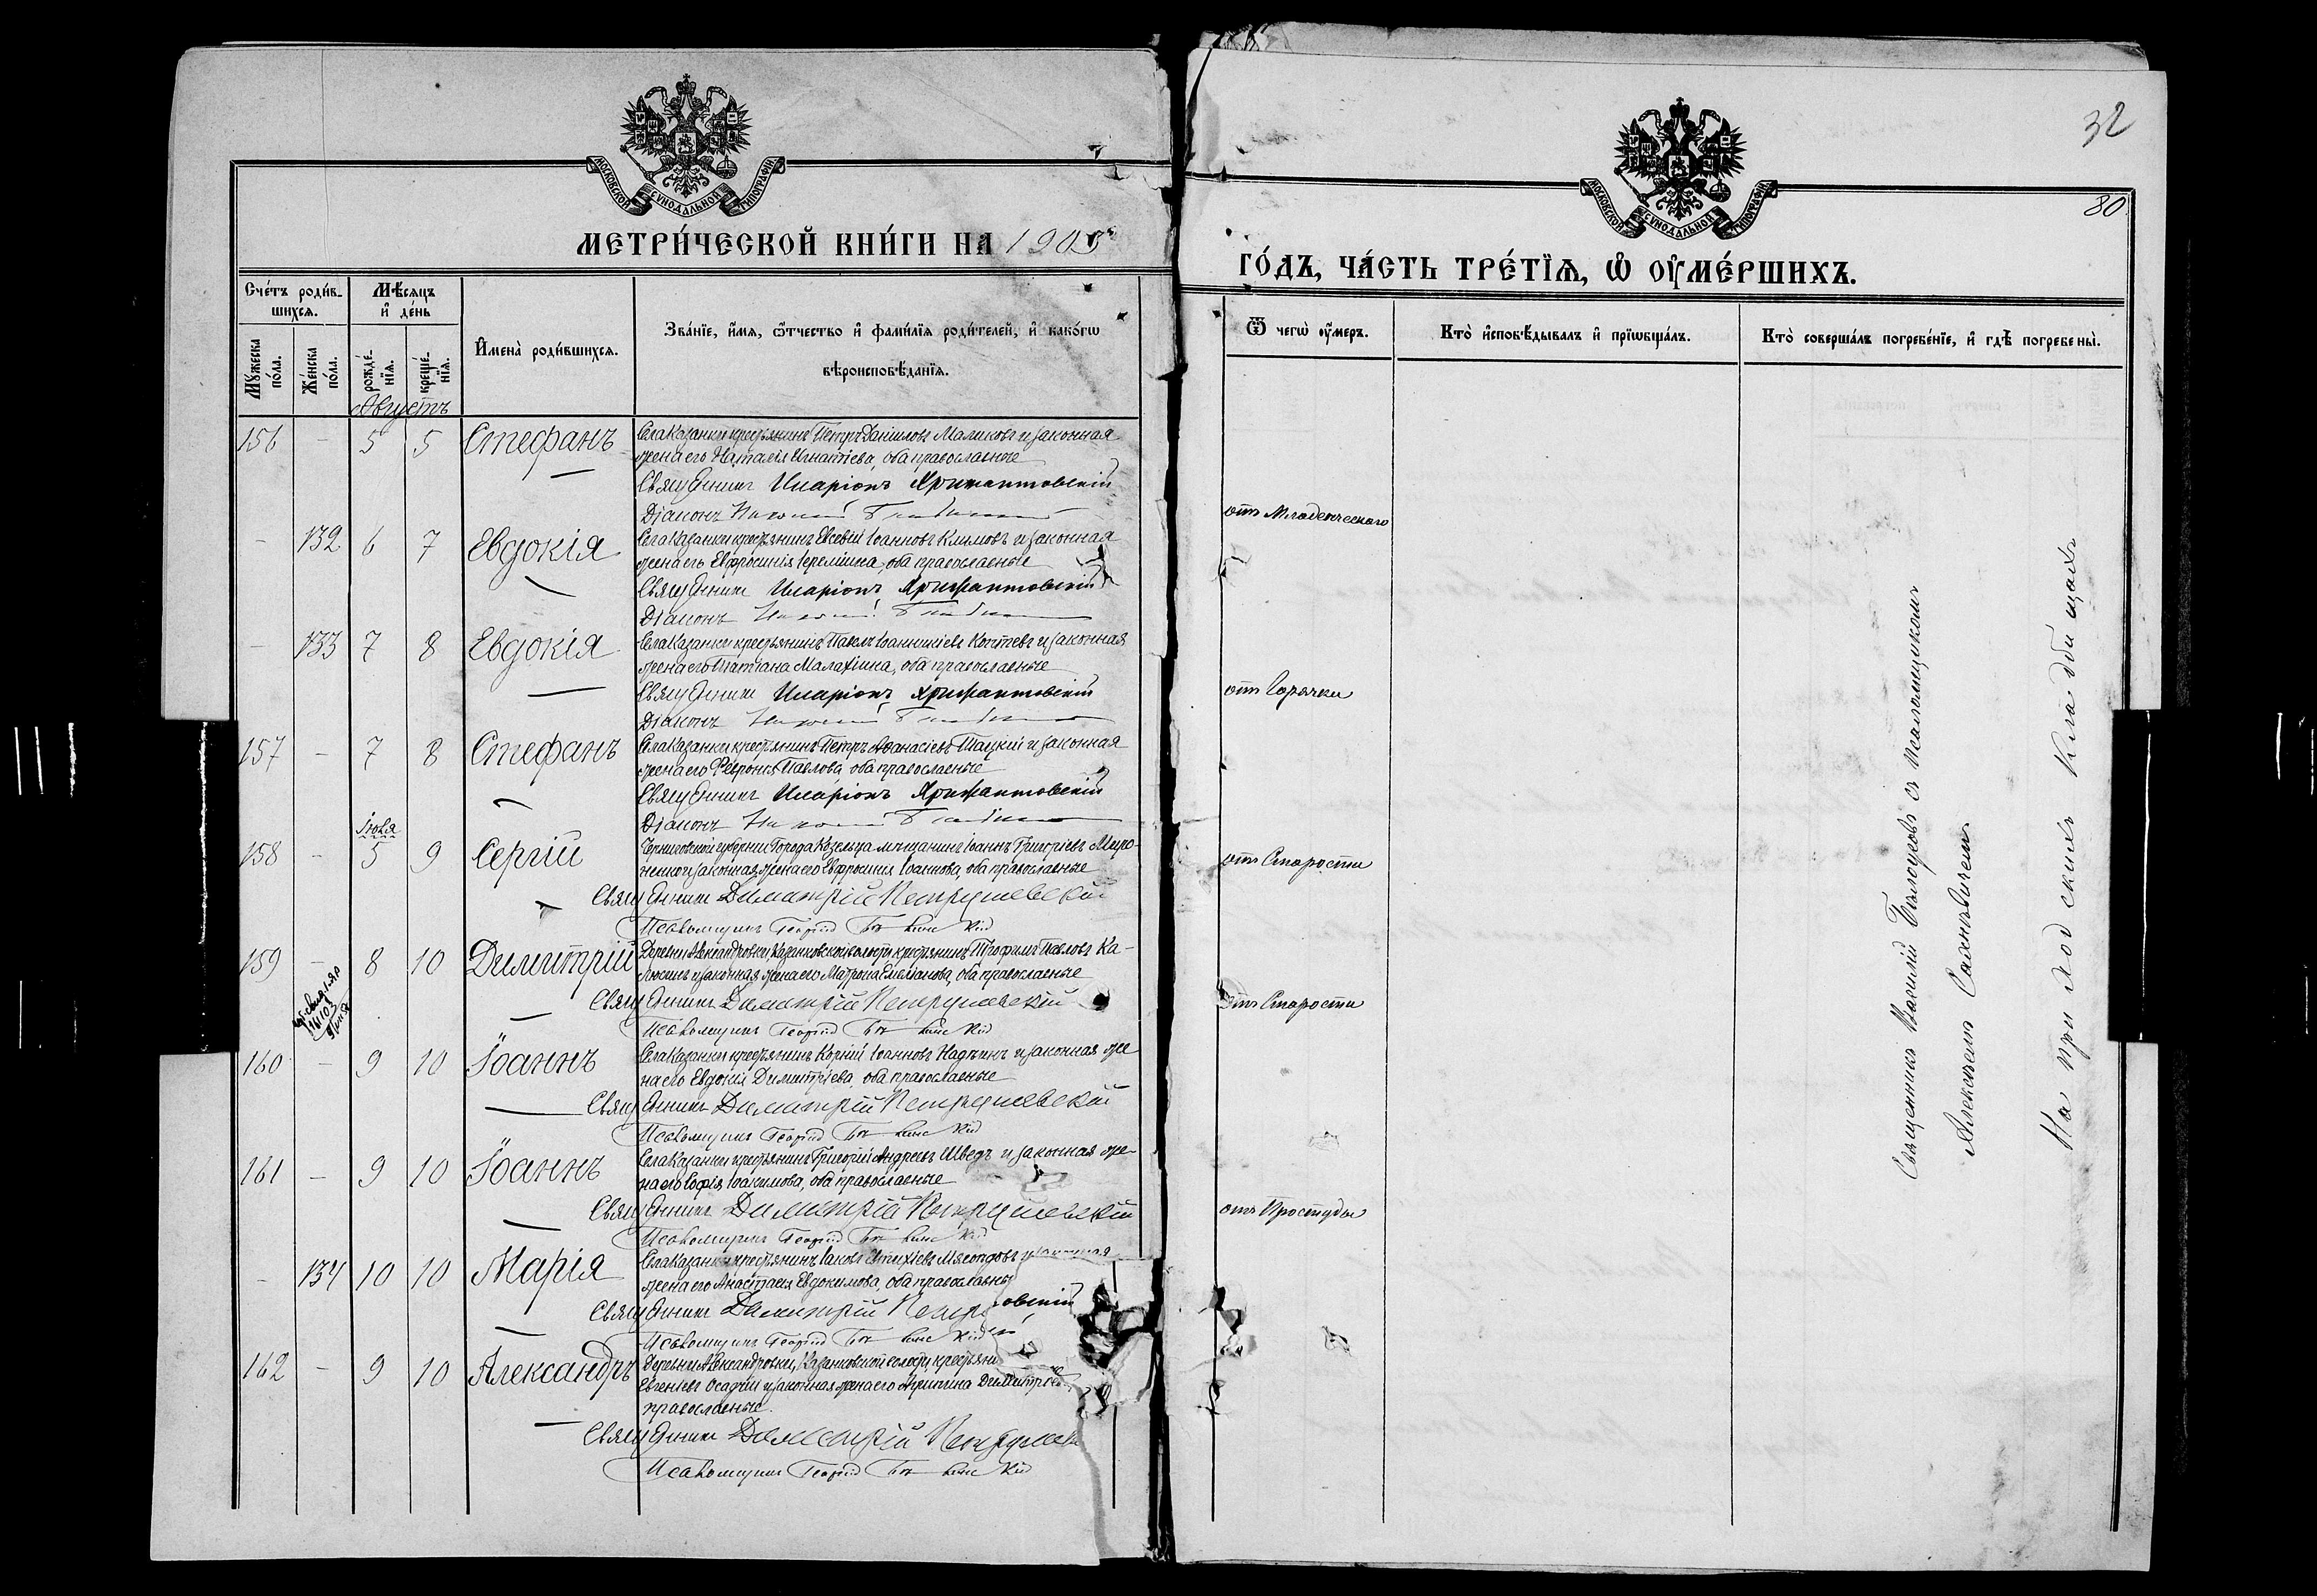 МОСКОВСКОЙ СѴНОДАЛЬНОЙ ТИПОГРАФІИ
МЕТРИ́ЧЕСКОЙ КНИ́ГИ НА 1903
Сче́тъ роди́в-
шихсѧ.
Мѣ́сѧцъ
и҆ де́нь
Мꙋ́жеска
по́ла.
Же́нска
по́ла.
рожде́-
нїѧ.
креще́-
нїѧ.
И҆мена̀ роди́вшихсѧ.
Зва́нїе, и҆́мѧ, ѻ҆́тчество и҆ фами́лїѧ роди́телей, и҆ како́гѡ
вѣроисповѣ́данїѧ.
Августъ
156 - 5 5 Стефанъ
Села Казанки крестьянинъ Петръ Даніиловъ Маликовъ и законная
жена его Наталія Игнатіева, оба православные
Священникъ Иларіонъ Крижантовскій
Діаконъ
- 132 6 7 Евдокія
Села Казанки крестьянинъ Евсевій Іоанновъ Климовъ и законная
жена его Евфросинія Іереміина, оба православные
Священникъ Иларіонъ Крижантовскій
Діаконъ
- 133 7 8 Евдокія
Села Казанки крестьянинъ Павелъ Іоанникіевъ Коптевъ и законная
жена его Татіана Малахіина, оба православные
Священникъ Иларіонъ Крижантовскій
Діаконъ
157 - 7 8 Стефанъ
Села Казанки крестьянинъ Петръ Аѳанасіевъ Тацкій и законная
жена его Февронія Павлова оба православные
Священникъ Иларіонъ Крижантовскій
Діаконъ
Іюля
158 - 5 9 Сергій
Черниговской губерніи Города Козельца мѣщанинъ Іоаннъ Григоріевъ Миро-
ненко и законная жена его Евфросинія Іоаннова, оба православные
Священникъ Димитрій Петрушевскій
Псаломщикъ Георгій
159 - 8 10 Димитрій
Деревни Александровки, Казанковской волости крестьянинъ Трофимъ Павловъ Ка-
и законная жена его Матрона Емеліанова, оба православные
Священникъ Димитрій Петрушевскій
Псаломщикъ Георгій
160 - 9 10 Іоаннъ
Села Казанки крестьянинъ Корній Іоанновъ и законная же-
на его Евдокія Димитріева, оба православные
Священникъ Димитрій Петрушевскій
Псаломщикъ Георгій
161 - 9 10 Іоаннъ
Села Казанки крестьянинъ Григорій Андреевъ Шведъ и законная же-
на его Софія Іоакимова, оба православные
Священникъ Димитрій Петрушевскій
Псаломщикъ Георгій
- 134 10 10 Марія
Села Казанки крестьянинъ Іаковъ Мясоѣдовъ и законная
жена его Анастасія Евдокимова, оба православны
Священникъ Димитрій Петр овскій
Псаломщикъ Георгій
162 - 9 10 Александръ
Деревни Александровки, Казанковской волости, крестьяни
Евгеніевъ Осадчій и законная жена его Агрипина Димитріе
православные.
Священникъ Димитрій Петрушев
Псаломщикъ Георгій
32
80
МОСКОВСКОЙ СѴНОДАЛЬНОЙ ТИПОГРАФІИ
ГО́ДЪ, ЧА́СТЬ ТРЕ́ТЇѦ, Ѡ҆ ОУ҆МЕ́РШИХЪ.
Ѿ чегѡ̀ ᲂу҆́меръ.
Кто̀ и҆сповѣ́дывалъ и҆ прїѡбща́лъ.
Кто̀ соверша́лъ погребе́нїе, и҆ гдѣ̀ погребены̀.
отъ Младенческаго
отъ Горячки
отъ Старости
отъ Старости
отъ Простуды
Священникъ Василій Бѣлоусовъ съ псаломщикомъ
Алексѣемъ
На приходскихъ кладбищахъ